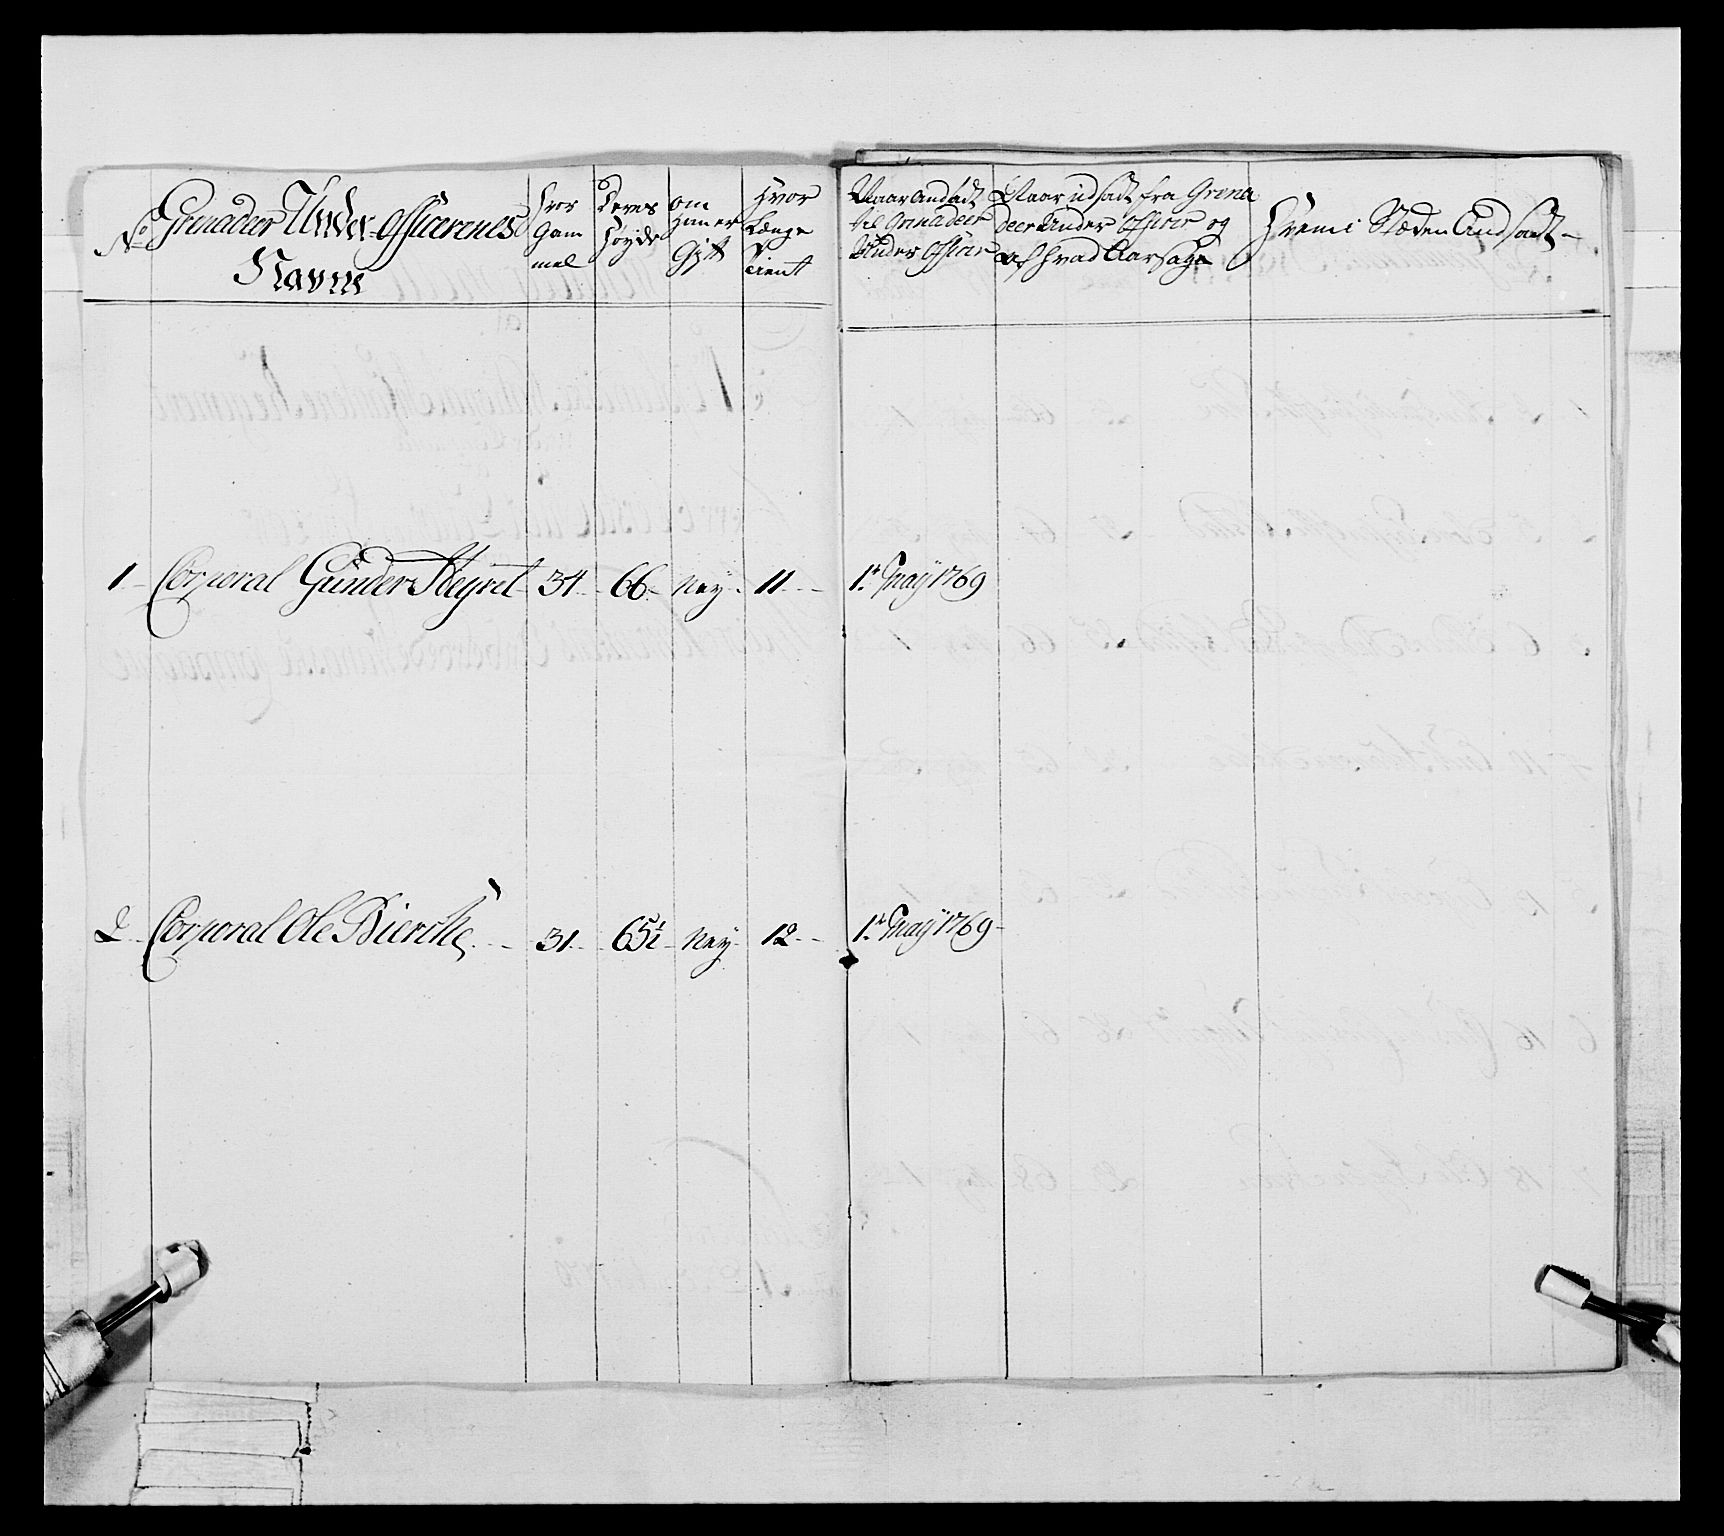 No Grenadeer Under officerenes
Navne
Hvor
Gam
mel
Deres
Høyde
om
Hun er
Gift
Hvor
Længe
Tient
Naar andsadt
til Grenadeer
Under Officer
Naar udsadt fra Grena
deer Under Officer og
af hvad Aarsage
Hvem i Stæden Andsadt
1 Corporal Gunder 34 66 Ney 11 1t May 1769
2 Corporal Ole Bierche 31 65½ Ney 12 1t May 1769